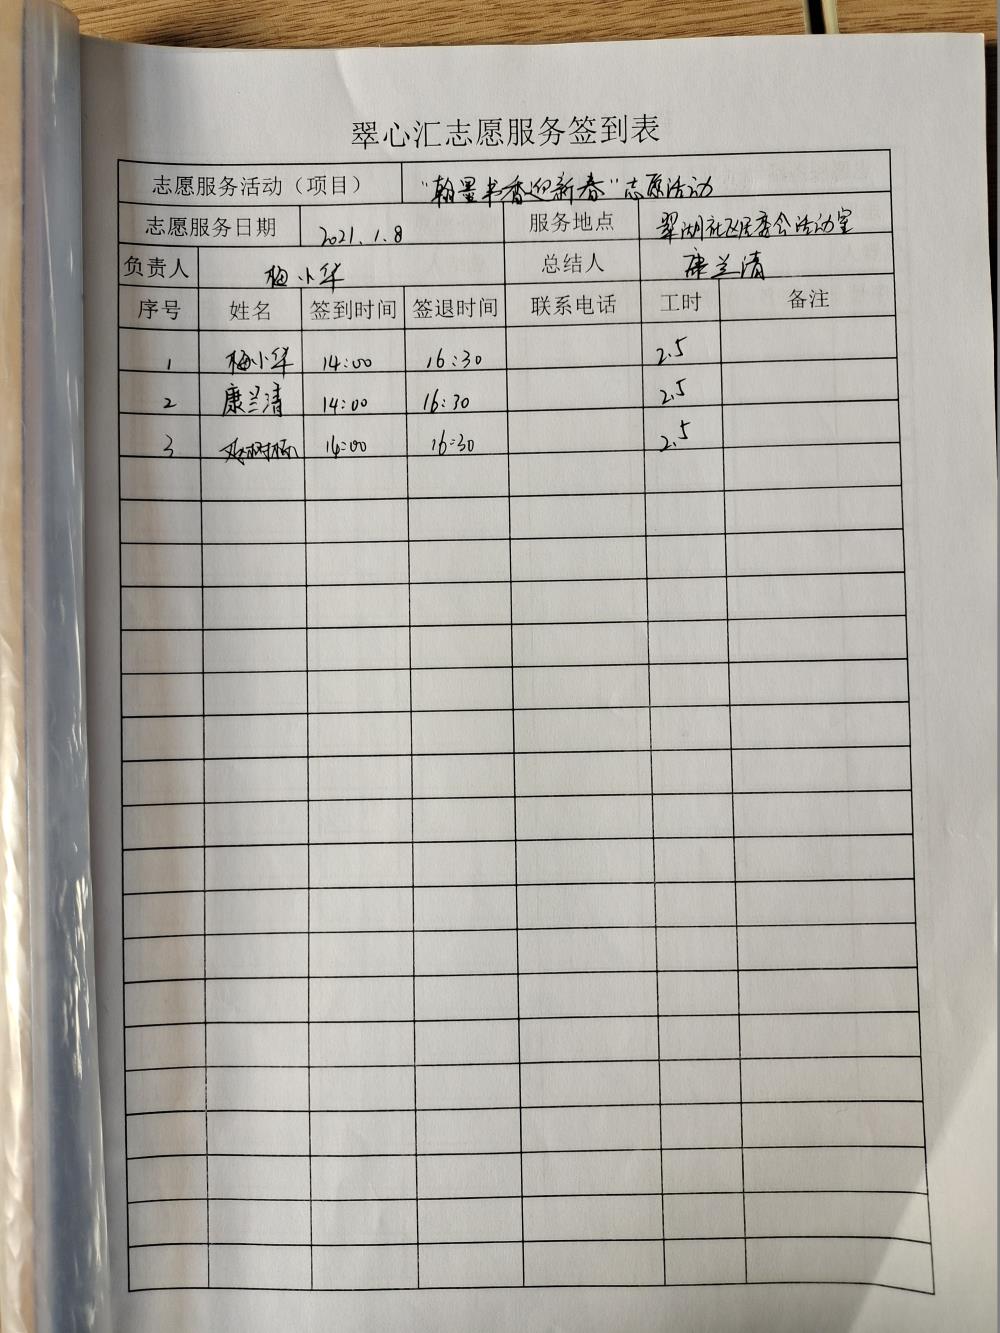 翠心汇志愿服务签到表
志愿服务活动（项目） “翰墨书香迎新春”志愿活动
志愿服务日期 2021.1.8 服务地点 翠湖社区居委会活动室
负责人 梅小华 总结人 康兰清
序号 姓名 签到时间 签退时间 联系电话 工时 备注
1 梅小华 14:00 16:30 2.5
2 康兰清 14:00 16:30 2.5
3 14:00 16:30 2.5